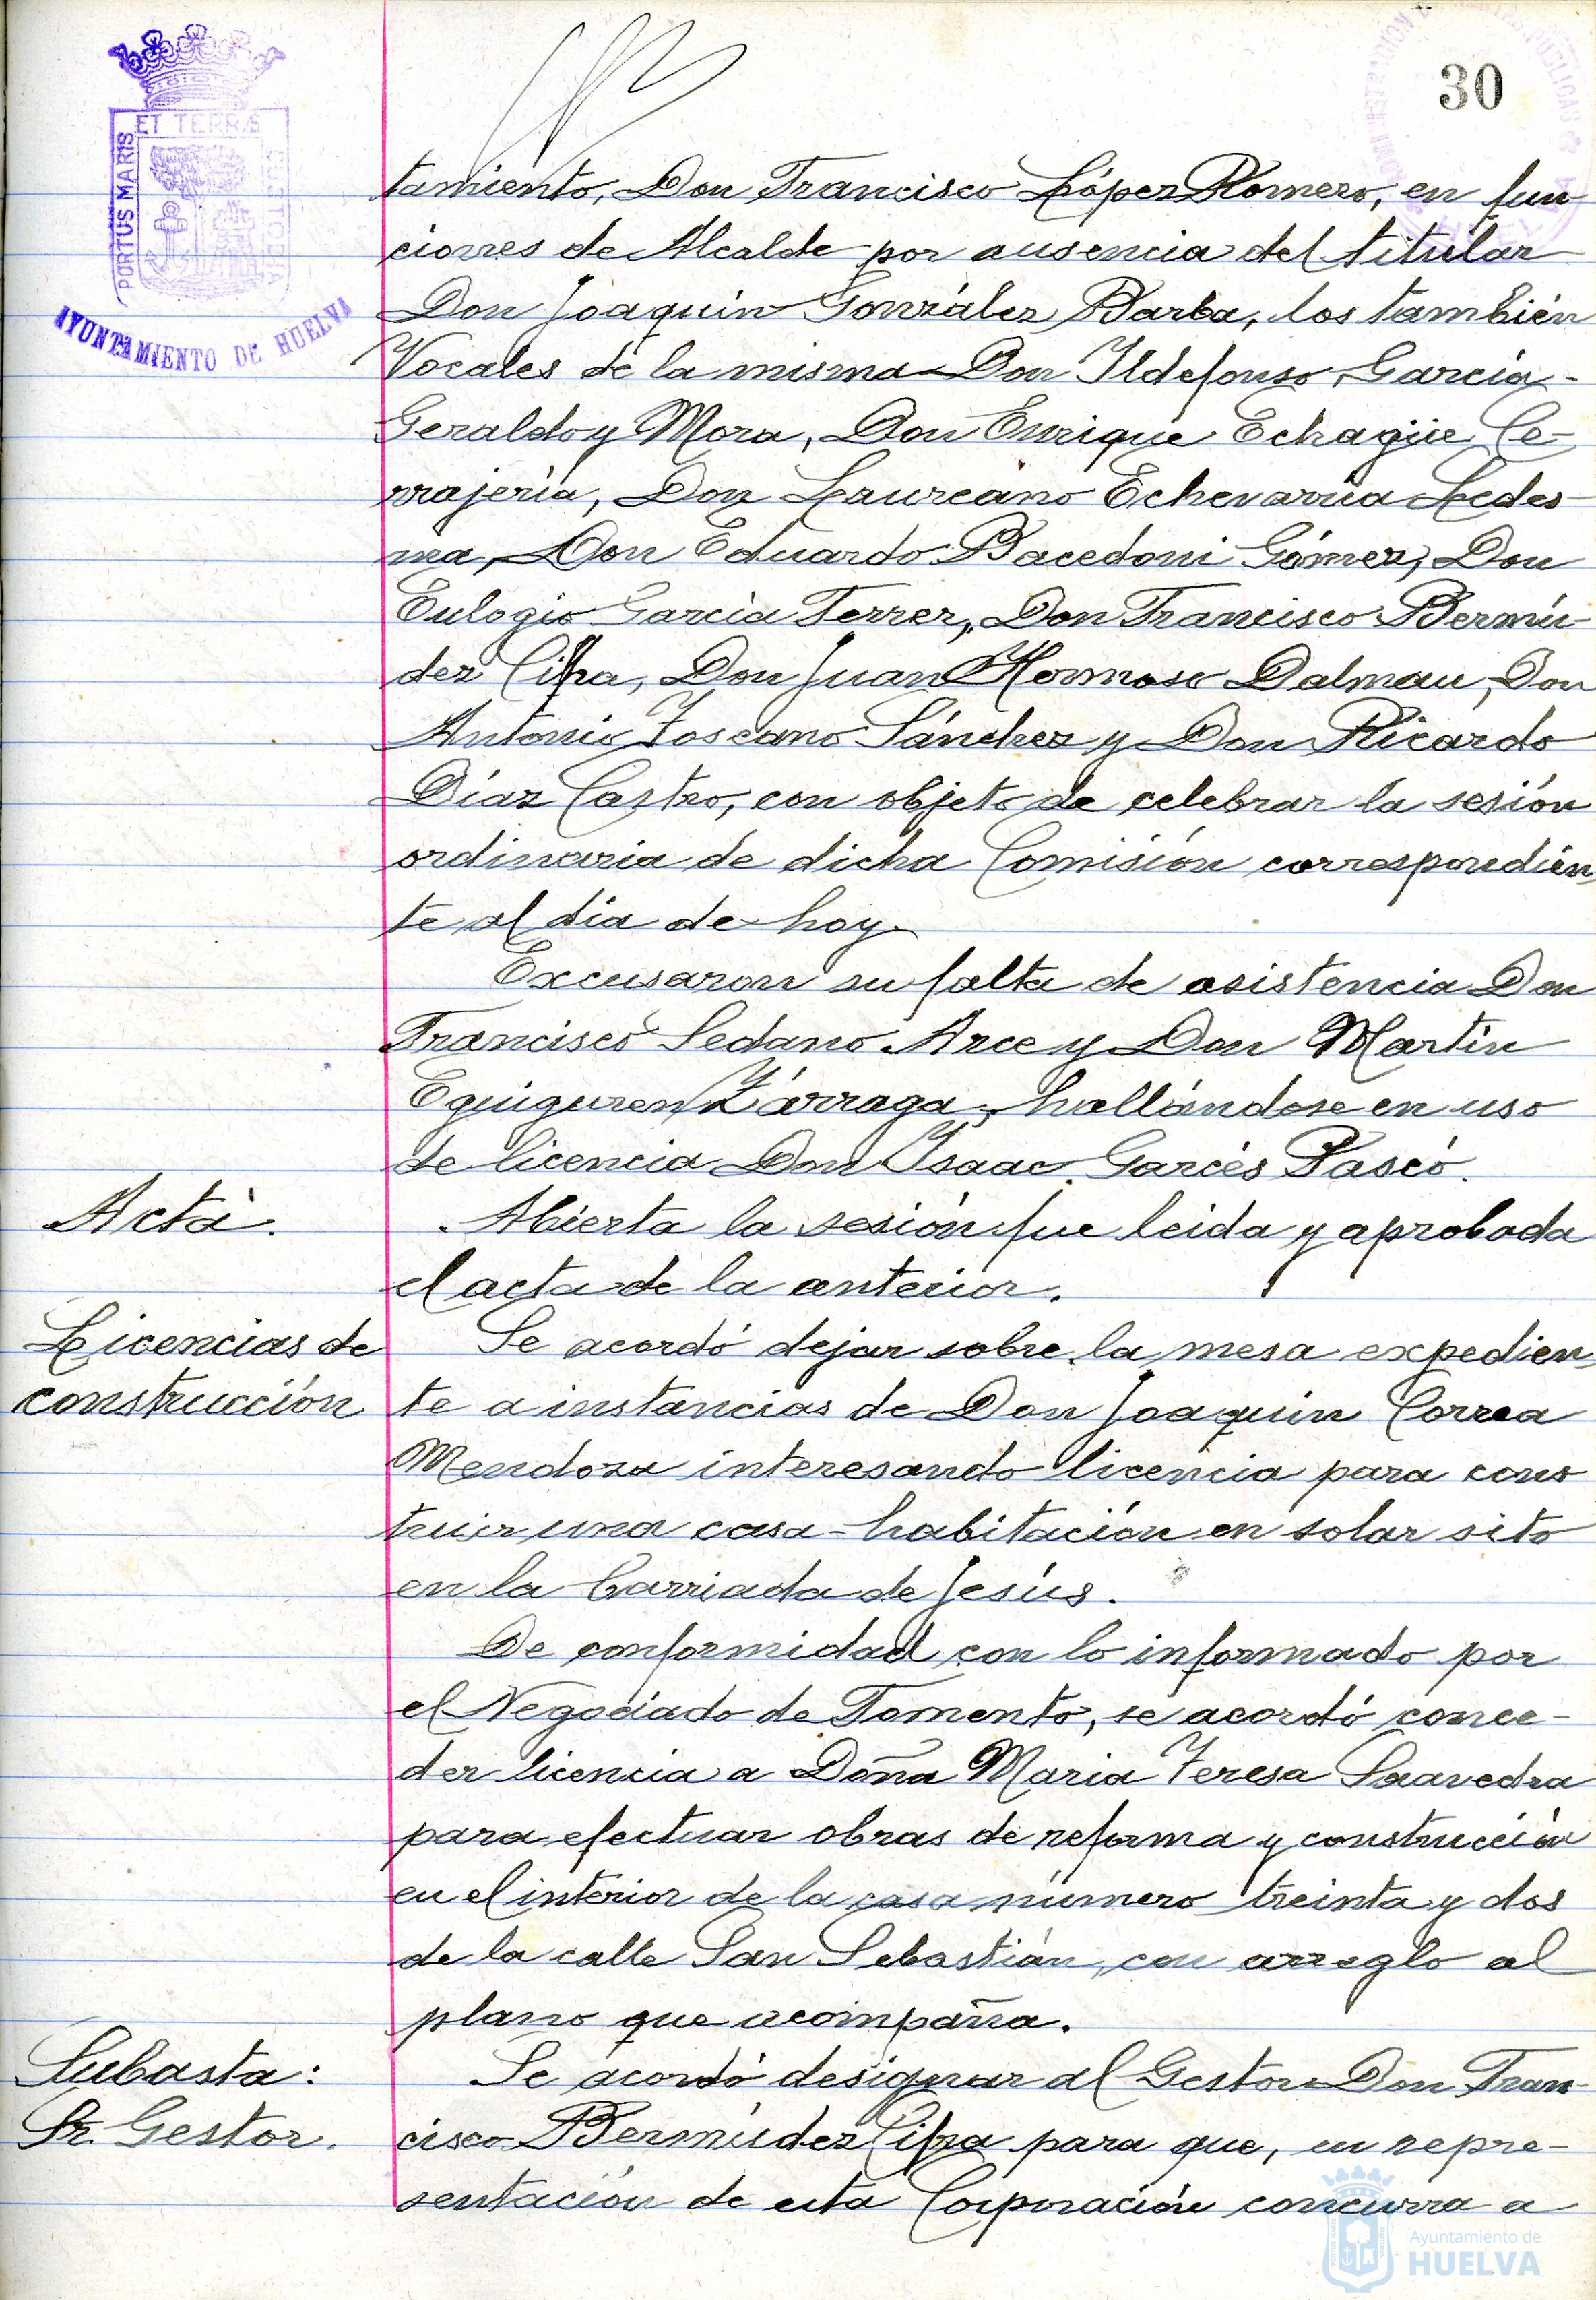 30
ET TERRÆ
PORTUS MARIS
CUSTODIA
AYUNTAMIENTO DE HUELVA
tamiento, Don Francisco López Romero, en fun-
ciones de Alcalde por ausencia del titular
Don Joaquín González Barba, los también
Vocales de la misma Don Ildefonso García-
Geraldo y Mora, Don Enrique Echagüe Ce-
rrajería, Don Laureano Echevarría Ledes-
ma, Don Eduardo Bacedoni Gómez, Don
Eulogio García Ferrer, Don Francisco Bermú-
dez Cifra, Don Juan Hormoso Dalmau, Don
Antonio Toscano Sánchez y Don Ricardo
Díaz Castro, con objeto de celebrar la sesión
ordinaria de dicha Comisión correspondien-
te al día de hoy.
Excusaron su falta de asistencia Don
Francisco Sedano Arce y Don Martín
Eguiguren Zárraga, hallándose en uso
de licencia Don Isaac Garcés Pascó.
Acta.
Abierta la sesión fue leida y aprobada
el acta de la anterior.
Licencias de
construcción
Se acordó dejar sobre la mesa expedien-
te a instancias de Don Joaquín Correa
Mendoza interesando licencia para cons
truir una casa-habitación en solar sito
en la barriada de Jesús.
De conformidad con lo informado por
el Negociado de Fomento, se acordó conce-
der licencia a Doña Maria Teresa Saavedra
para efectuar obras de reforma y construcción
en el interior de la casa número treinta y dos
de la calle San Sebastián, con arreglo al
plano que acompaña.
Subasta:
Sr. Gestor.
Se acordó designar al Gestor Don Fran-
cisco Bermúdez Cifra para que, en repre-
sentación de esta Corporación concurra a
Ayuntamiento de
HUELVA